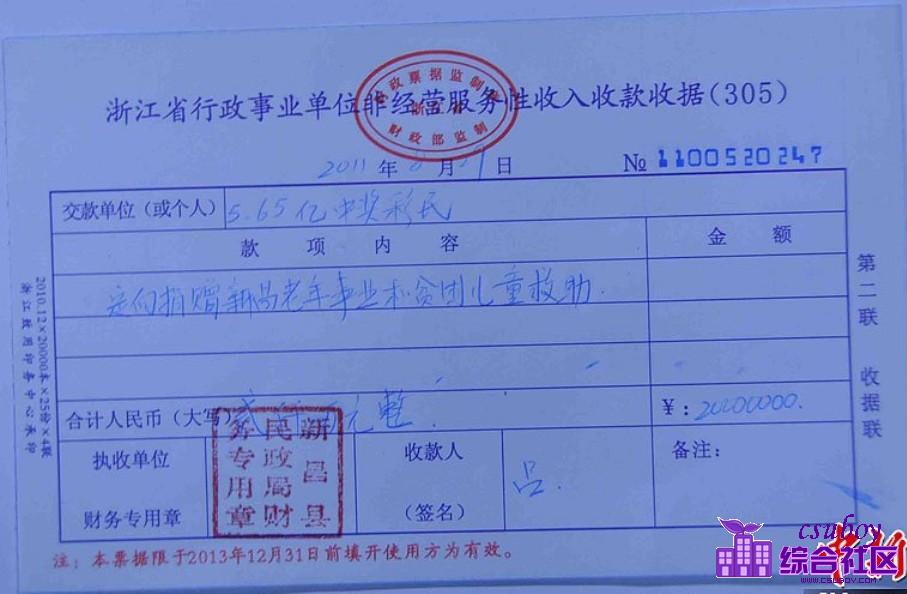 浙江省行政事业单位非经营服务性收入收款收据(305)
政票据监制
浙江省
财政部监制
2011年8月29日
№ 1100520247
交款单位（或个人） 5.65亿中奖彩民
款项内容 金额
定向捐赠新昌老年事业和贫困儿童救助.
合计人民币（大写） 贰仟万元整 ￥：20000000.
执收单位
财务专用章
新昌县民政局财务专用章
收款人
（签名）
吕.
备注：
注：本票据限于2013年12月31日前填开使用方为有效。
第二联 收据联
2010.12×20000本×25份×4联
csuboy
综合社区
www.csuboy.com